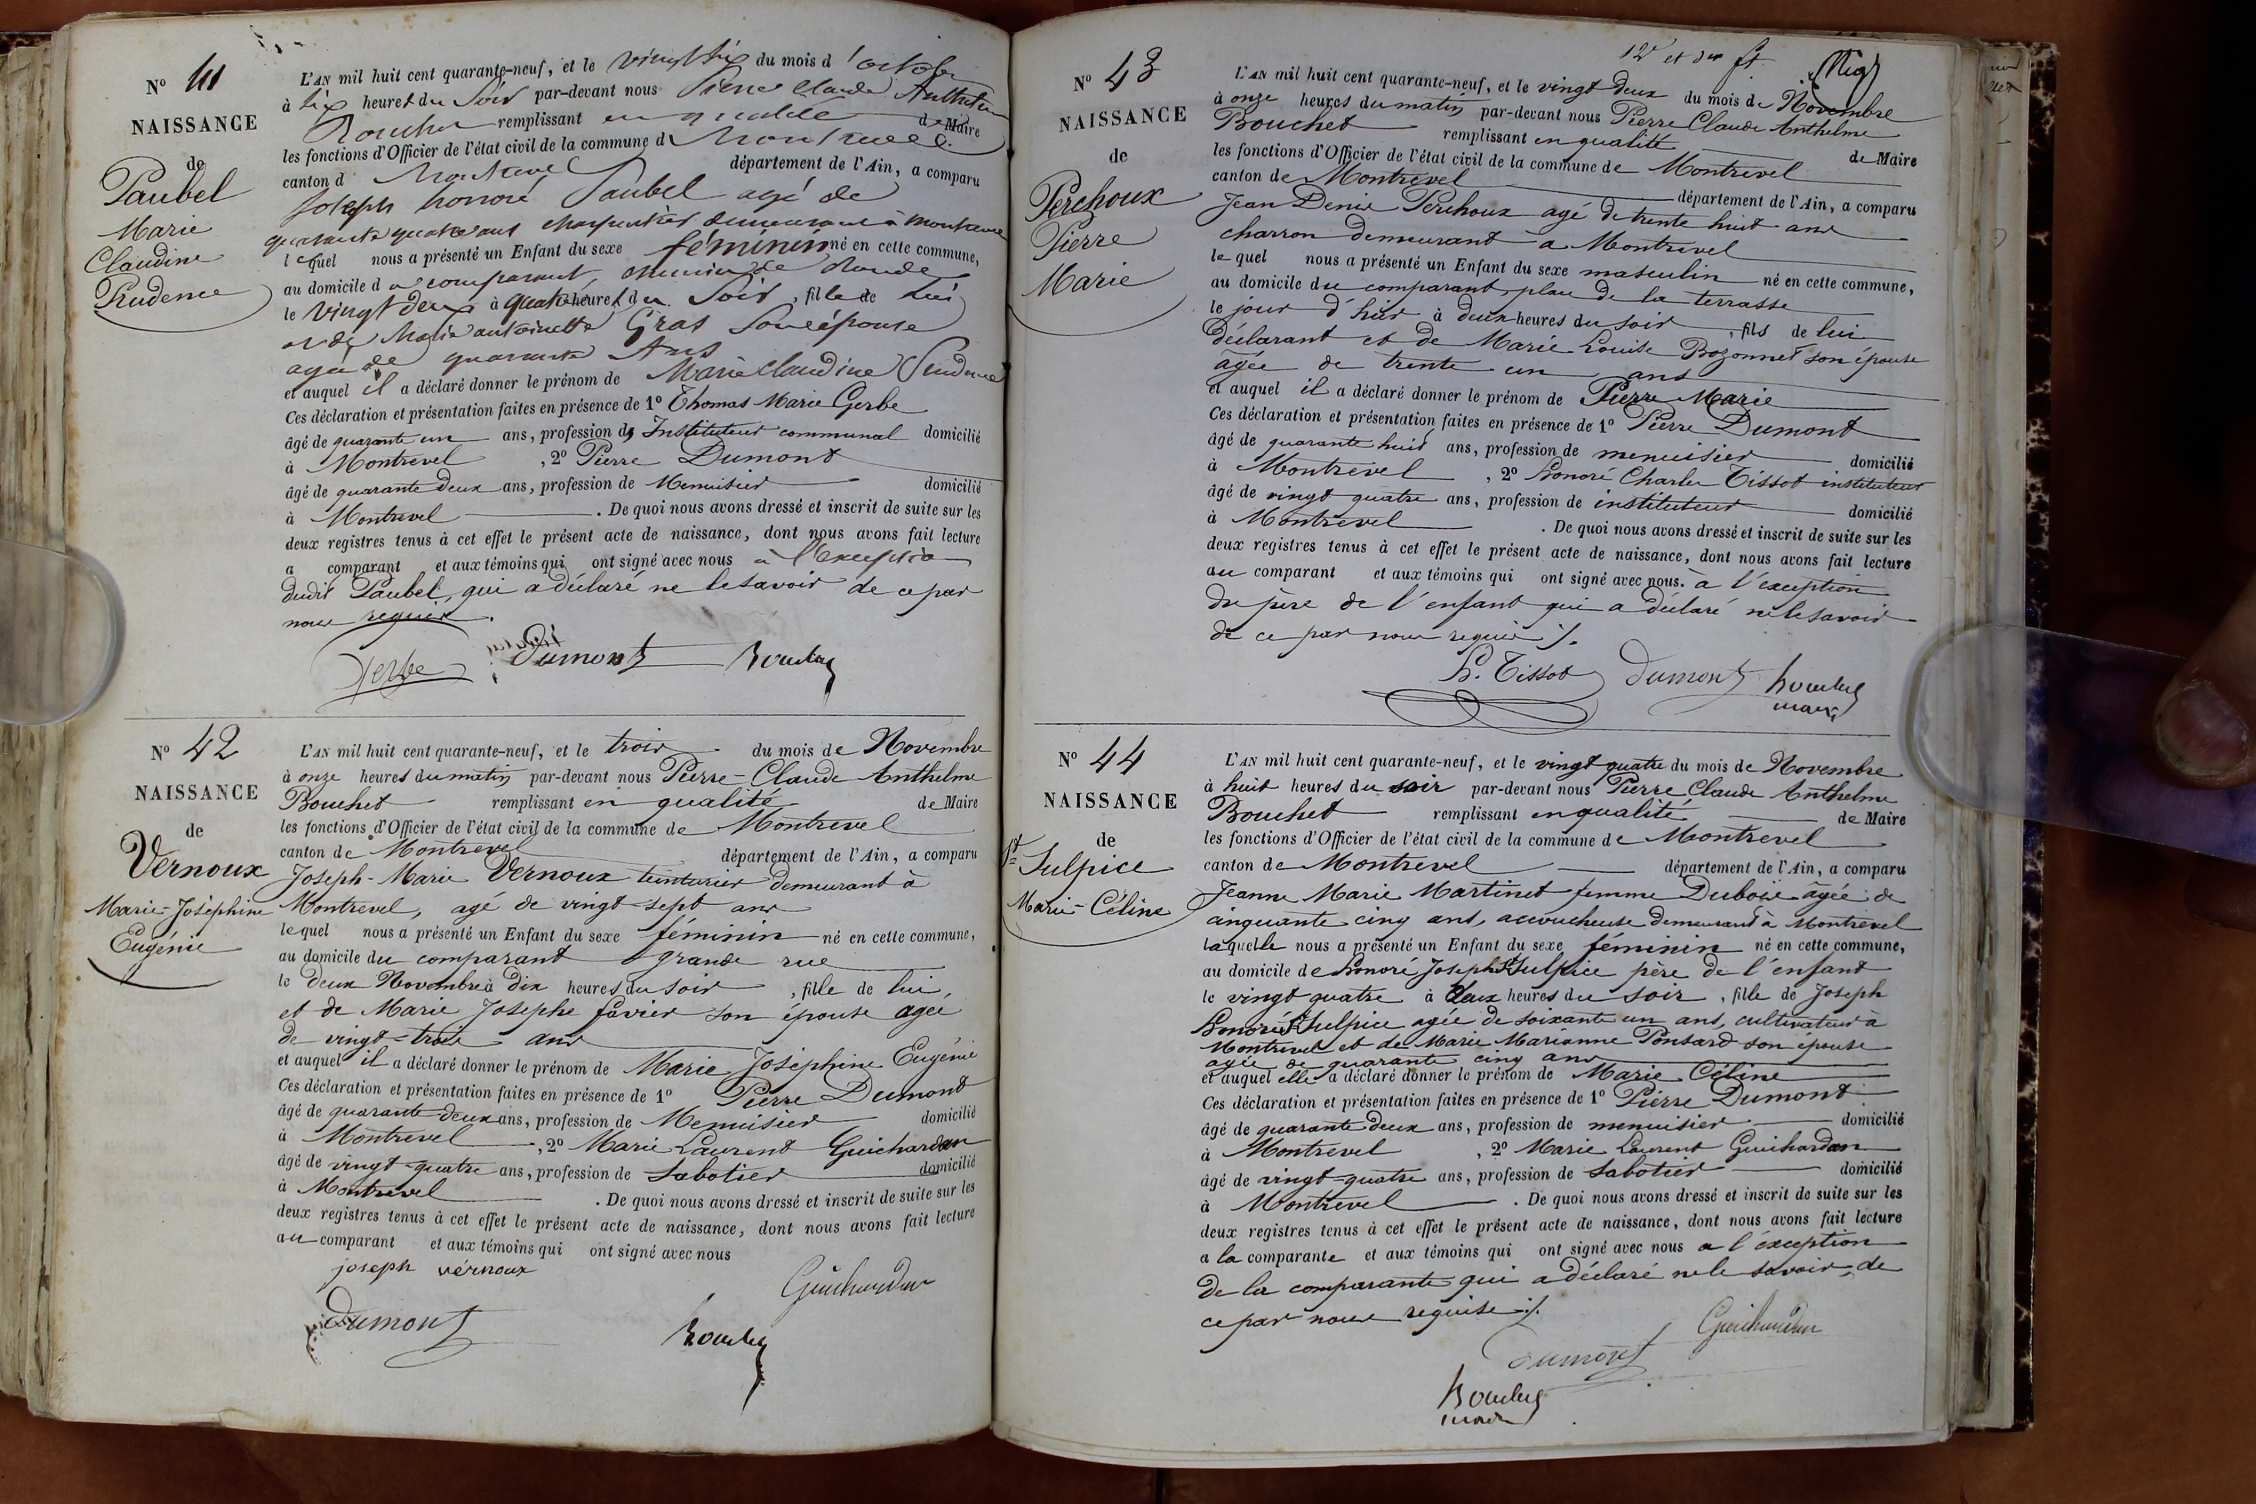 N° 41
NAISSANCE
de
Paubel
Marie
Claudine
Prudence
L'AN mil huit cent quarante-neuf, et le vingt six du mois d'octobre
à six heures du Soir par-devant nous Pierre Claude Anthelme
Bouchet remplissant en qualité de Maire
les fonctions d'Officier de l'état civil de la commune d Montrevel
canton d Montrevel département de l'Ain, a comparu
Joseph honoré Paubel agé de
quarante quatre ans charpentier demeurant à Montrevel
lequel nous a présenté un Enfant du sexe féminin né en cette commune,
au domicile d u comparant, chemin de Ronde
le vingt deux à quatre heures du Soir, fille de lui
et de Marie antoinette Gras Son épouse
agée de quarante Ans
et auquel il a déclaré donner le prénom de Marie Claudine Prudence
Ces déclaration et présentation faites en présence de 1° Thomas Marie Gerbe
âgé de quarante un ans, profession d' Instituteur communal domicilié
à Montrevel, 2° Pierre Dumont
âgé de quarante deux ans, profession de Menuisier domicilié
à Montrevel. De quoi nous avons dressé et inscrit de suite sur les
deux registres tenus à cet effet le présent acte de naissance, dont nous avons fait lecture
a comparant et aux témoins qui ont signé avec nous à l'exception
dudit Paubel, qui a déclaré ne le savoir de ce par
nous requis.
Gerbe Dumont Bouchet
N° 42
NAISSANCE
de
Vernoux
Marie-Joséphine
Eugénie
L'AN mil huit cent quarante-neuf, et le trois du mois de Novembre
à onze heures du matin par-devant nous Pierre-Claude Anthelme
Bouchet remplissant en qualité de Maire
les fonctions d'Officier de l'état civil de la commune de Montrevel
canton de Montrevel département de l'Ain, a comparu
Joseph-Marie Vernoux teinturier demeurant à
Montrevel, agé de vingt-sept ans
lequel nous a présenté un Enfant du sexe féminin né en cette commune,
au domicile du comparant grande rue
le deux Novembre à dix heures du soir, fille de lui,
et de Marie Josephe favier son épouse agée,
de vingt-trois ans
et auquel il a déclaré donner le prénom de Marie Joséphine Eugénie
Ces déclaration et présentation faites en présence de 1° Pierre Dumont
âgé de quarante-deux ans, profession de Menuisier domicilié
à Montrevel, 2° Marie Laurent Guichardan
âgé de vingt-quatre ans, profession de Sabotier domicilié
à Montrevel. De quoi nous avons dressé et inscrit de suite sur les
deux registres tenus à cet effet le présent acte de naissance, dont nous avons fait lecture
au comparant et aux témoins qui ont signé avec nous
joseph vérnoux
Guichardan
Dumont Bouchet
12e et der ft.
N° 43
NAISSANCE
de
Perchoux
Pierre
Marie
L'AN mil huit cent quarante-neuf, et le vingt deux du mois de Novembre
à onze heures du matin par-devant nous Pierre Claude Anthelme
Bouchet remplissant en qualité de Maire
les fonctions d'Officier de l'état civil de la commune de Montrevel
canton de Montrevel département de l'Ain, a comparu
Jean Denis Perchoux agé de trente huit ans
charron demeurant a Montrevel
lequel nous a présenté un Enfant du sexe masculin né en cette commune,
au domicile du comparant, place de la terrasse
le jour d'hier à deux heures du soir, fils de lui
déclarant et de Marie Louise Bozonnet son épouse
âgée de trente un ans
et auquel il a déclaré donner le prénom de Pierre Marie
Ces déclaration et présentation faites en présence de 1° Pierre Dumont
âgé de quarante huit ans, profession de menuisier domicilié
à Montrevel, 2° Honoré Charles Tissot instituteur
âgé de vingt quatre ans, profession de instituteur domicilié
à Montrevel. De quoi nous avons dressé et inscrit de suite sur les
deux registres tenus à cet effet le présent acte de naissance, dont nous avons fait lecture
au comparant et aux témoins qui ont signé avec nous. à l'exception
du père de l'enfant qui a déclaré ne le savoir
de ce par nous requis ./.
H. Tissot Dumont Bouchet
maire
N° 44
NAISSANCE
de
St Sulpice
Marie-Céline
L'AN mil huit cent quarante-neuf, et le vingt quatre du mois de Novembre
à huit heures du soir par-devant nous Pierre Claude Anthelme
Bouchet remplissant en qualité de Maire
les fonctions d'Officier de l'état civil de la commune de Montrevel
canton de Montrevel département de l'Ain, a comparu
Jeanne Marie Martinet femme Dubois âgée de
cinquante cinq ans, accoucheuse demeurant à Montrevel
laquelle nous a présenté un Enfant du sexe féminin né en cette commune,
au domicile de honoré Joseph St Sulpice père de l'enfant
le vingt quatre à deux heures du soir, fille de Joseph
honoré St Sulpice agée de soixante un ans, cultivateur à
Montrevel et de Marie Marianne Ponsard son épouse
agée de quarante cinq ans
et auquel elle a déclaré donner le prénom de Marie Céline
Ces déclaration et présentation faites en présence de 1° Pierre Dumont
âgé de quarante deux ans, profession de menuisier domicilié
à Montrevel, 2° Marie Laurent Guichardan
âgé de vingt-quatre ans, profession de Sabotier domicilié
à Montrevel. De quoi nous avons dressé et inscrit de suite sur les
deux registres tenus à cet effet le présent acte de naissance, dont nous avons fait lecture
a la comparante et aux témoins qui ont signé avec nous a l'exception
de la comparante qui a déclaré ne le savoir, de
ce par nous requise ./.
Guichardan
Dumont
Bouchet
maire